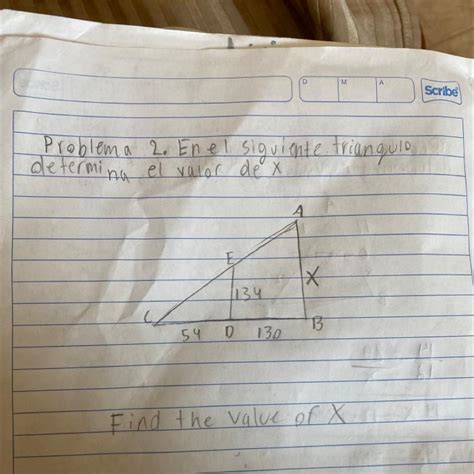 D M A
Scribe
Problema 2. En el siguiente triangulo
determina el valor de x
A
E
134
X
C
54 D 130 B
Find the value of X